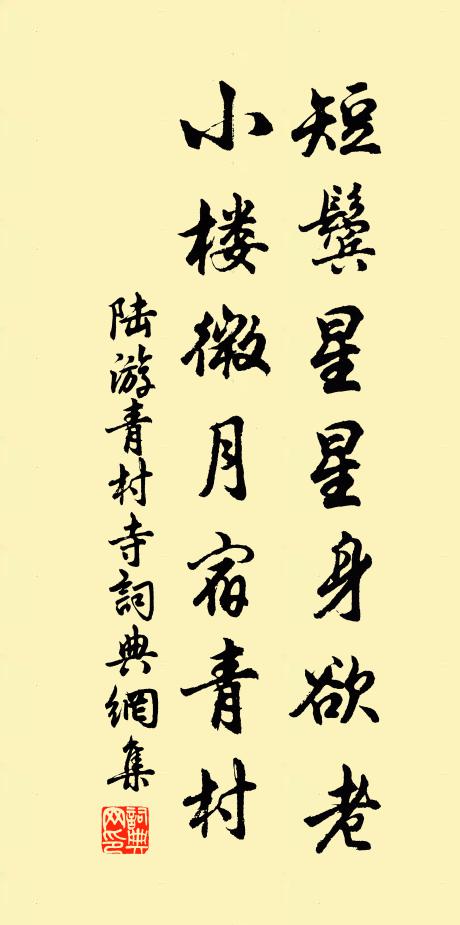 短鬓星星身欲老
小楼微月宿青村
陆游青村寺詞典網集
詞典网印